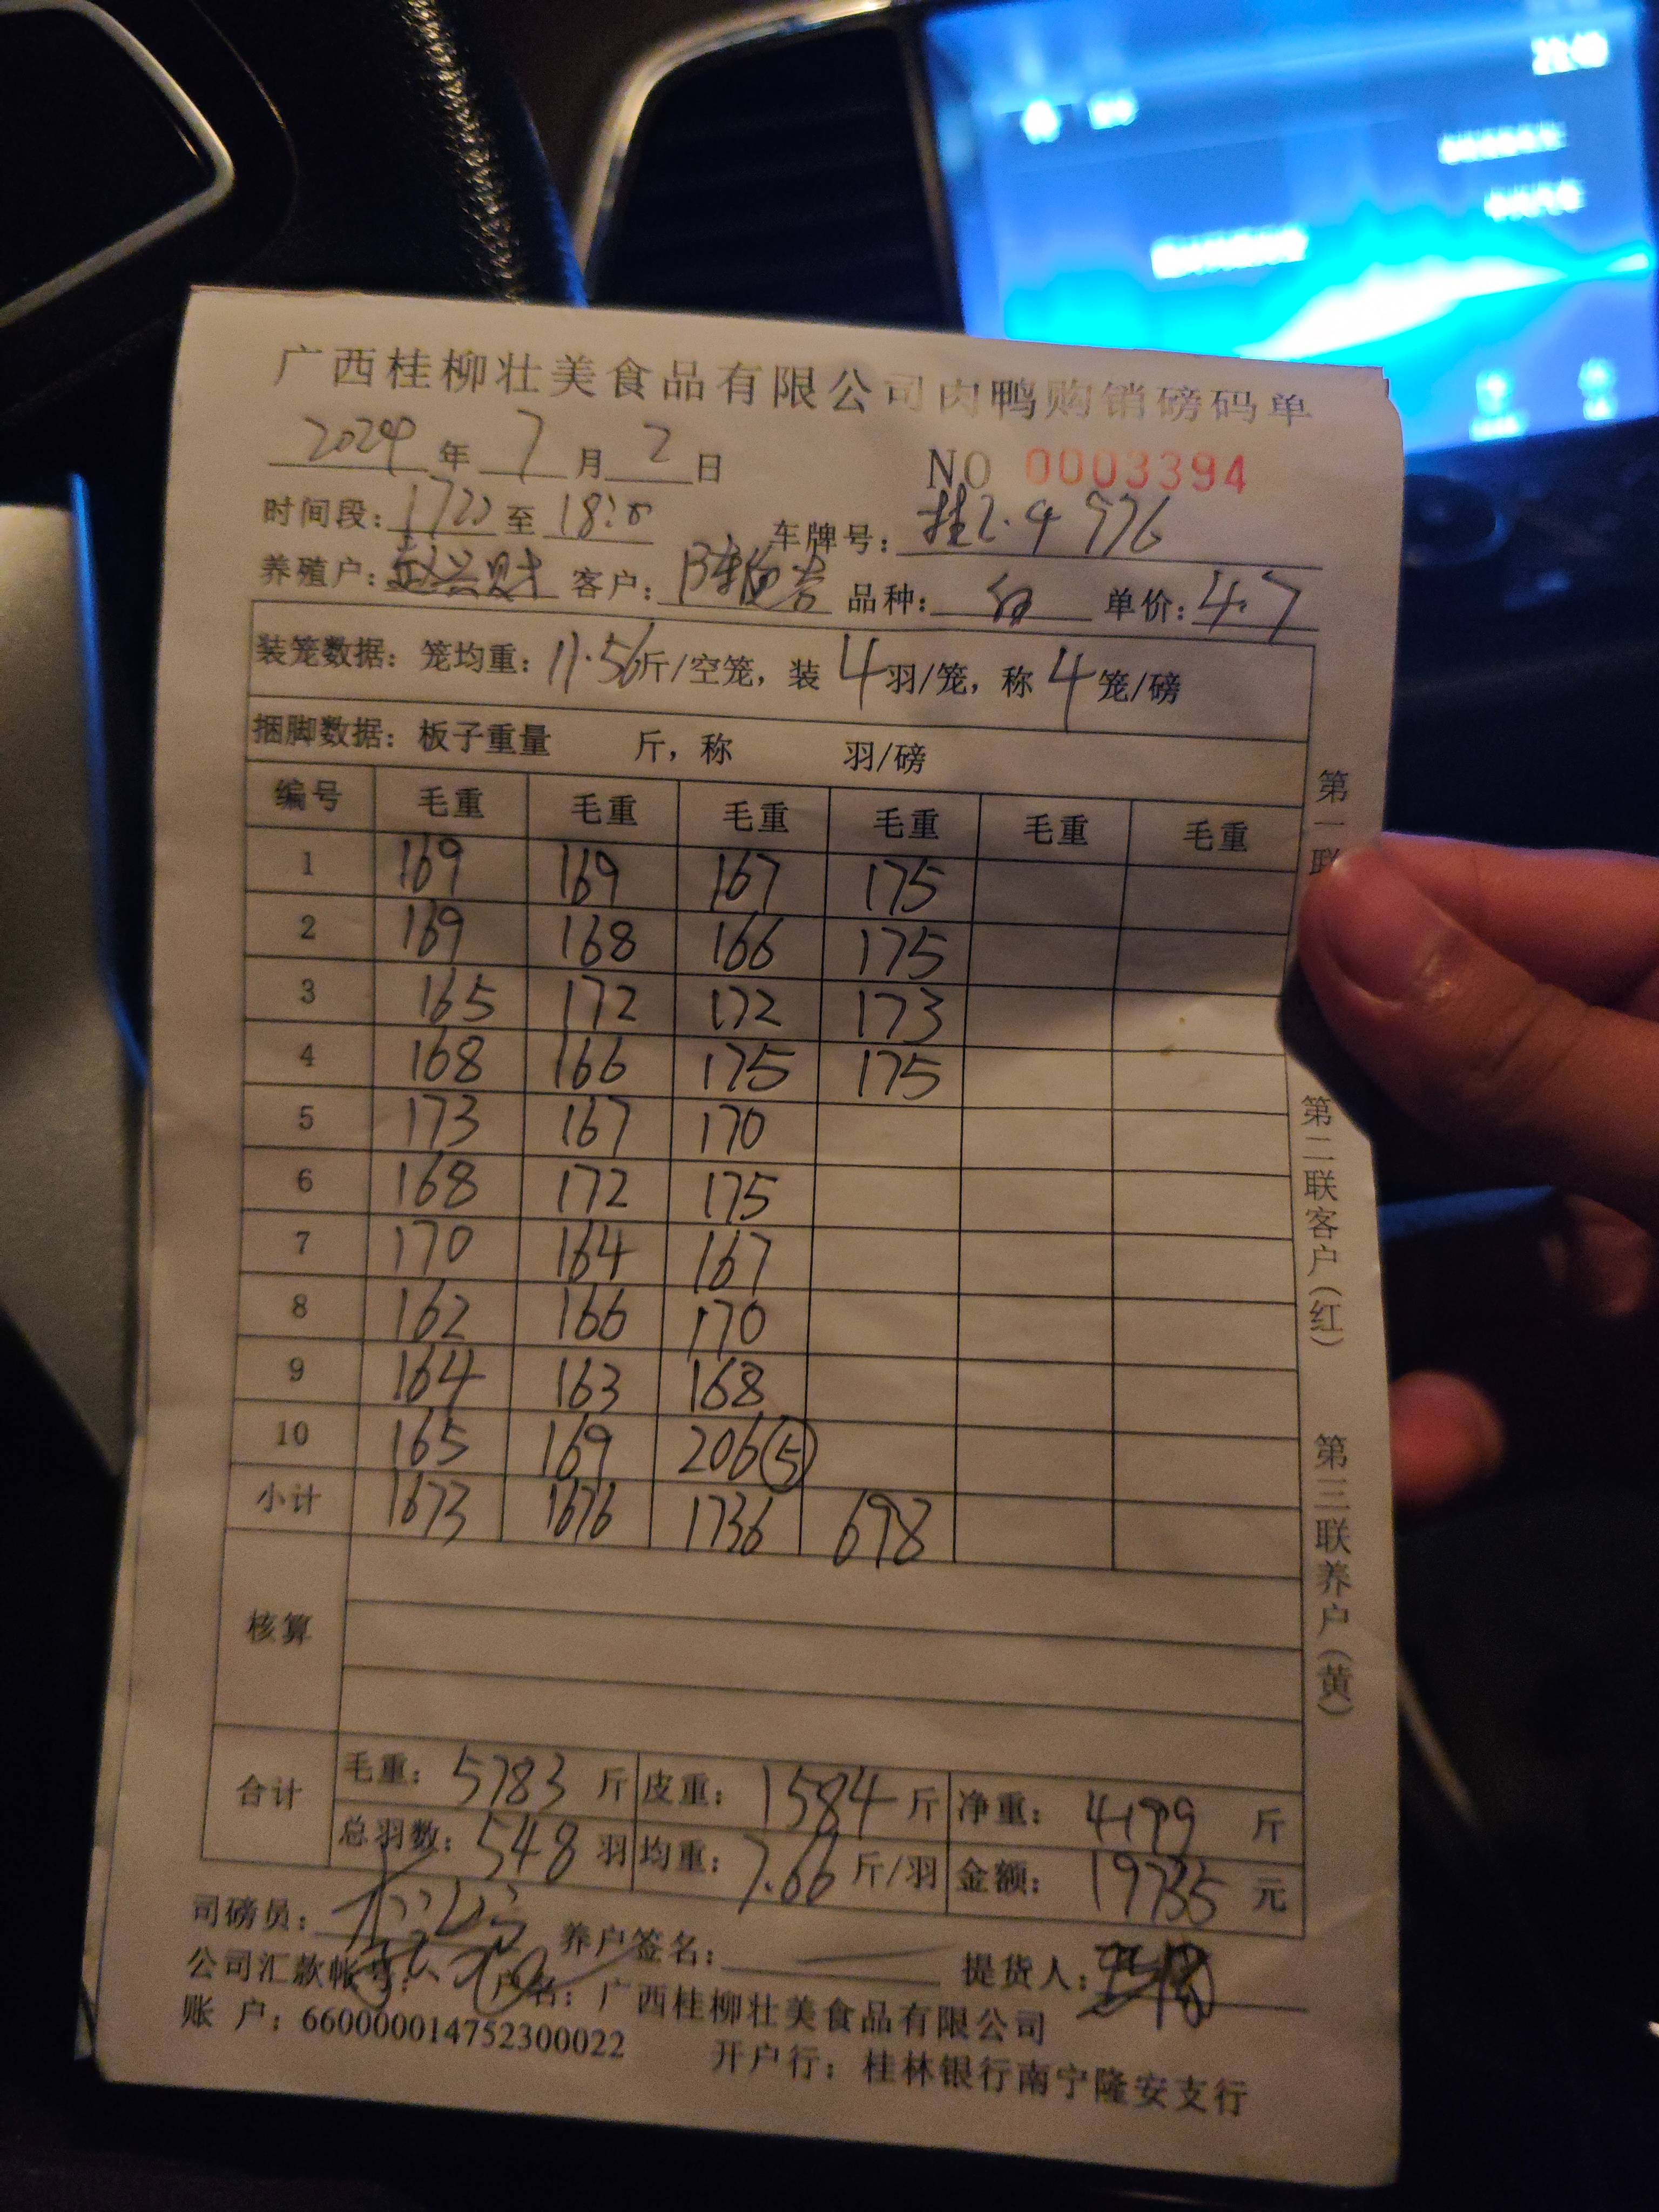 广西桂柳壮美食品有限公司肉鸭购销磅码单
2024年7月2日 NO 0003394
时间段: 至 车牌号: 976
养殖户:赵兴财 客户: 品种: 单价:4.7
装笼数据: 笼均重:11.56斤/空笼, 装4羽/笼, 称4笼/磅
捆脚数据: 板子重量 斤, 称 羽/磅
编号 毛重 毛重 毛重 毛重 毛重 毛重
1 169 169 167 175
2 169 168 166 175
3 165 172 172 173
4 168 166 175 175
5 173 167 170
6 168 172 175
7 170 164 167
8 162 166 170
9 164 163 168
10 165 169 206⑤
小计 1673 1676 1736 698
核算
合计 毛重: 5783 斤 皮重: 1584 斤 净重: 4199 斤
总羽数: 548 羽 均重: 7.66 斤/羽 金额: 19735 元
司磅员: 养户签名: 提货人:
公司汇款帐号: 户名: 广西桂柳壮美食品有限公司
账 户: 660000014752300022 开户行: 桂林银行南宁隆安支行
第一联
第二联客户(红)
第三联养户(黄)